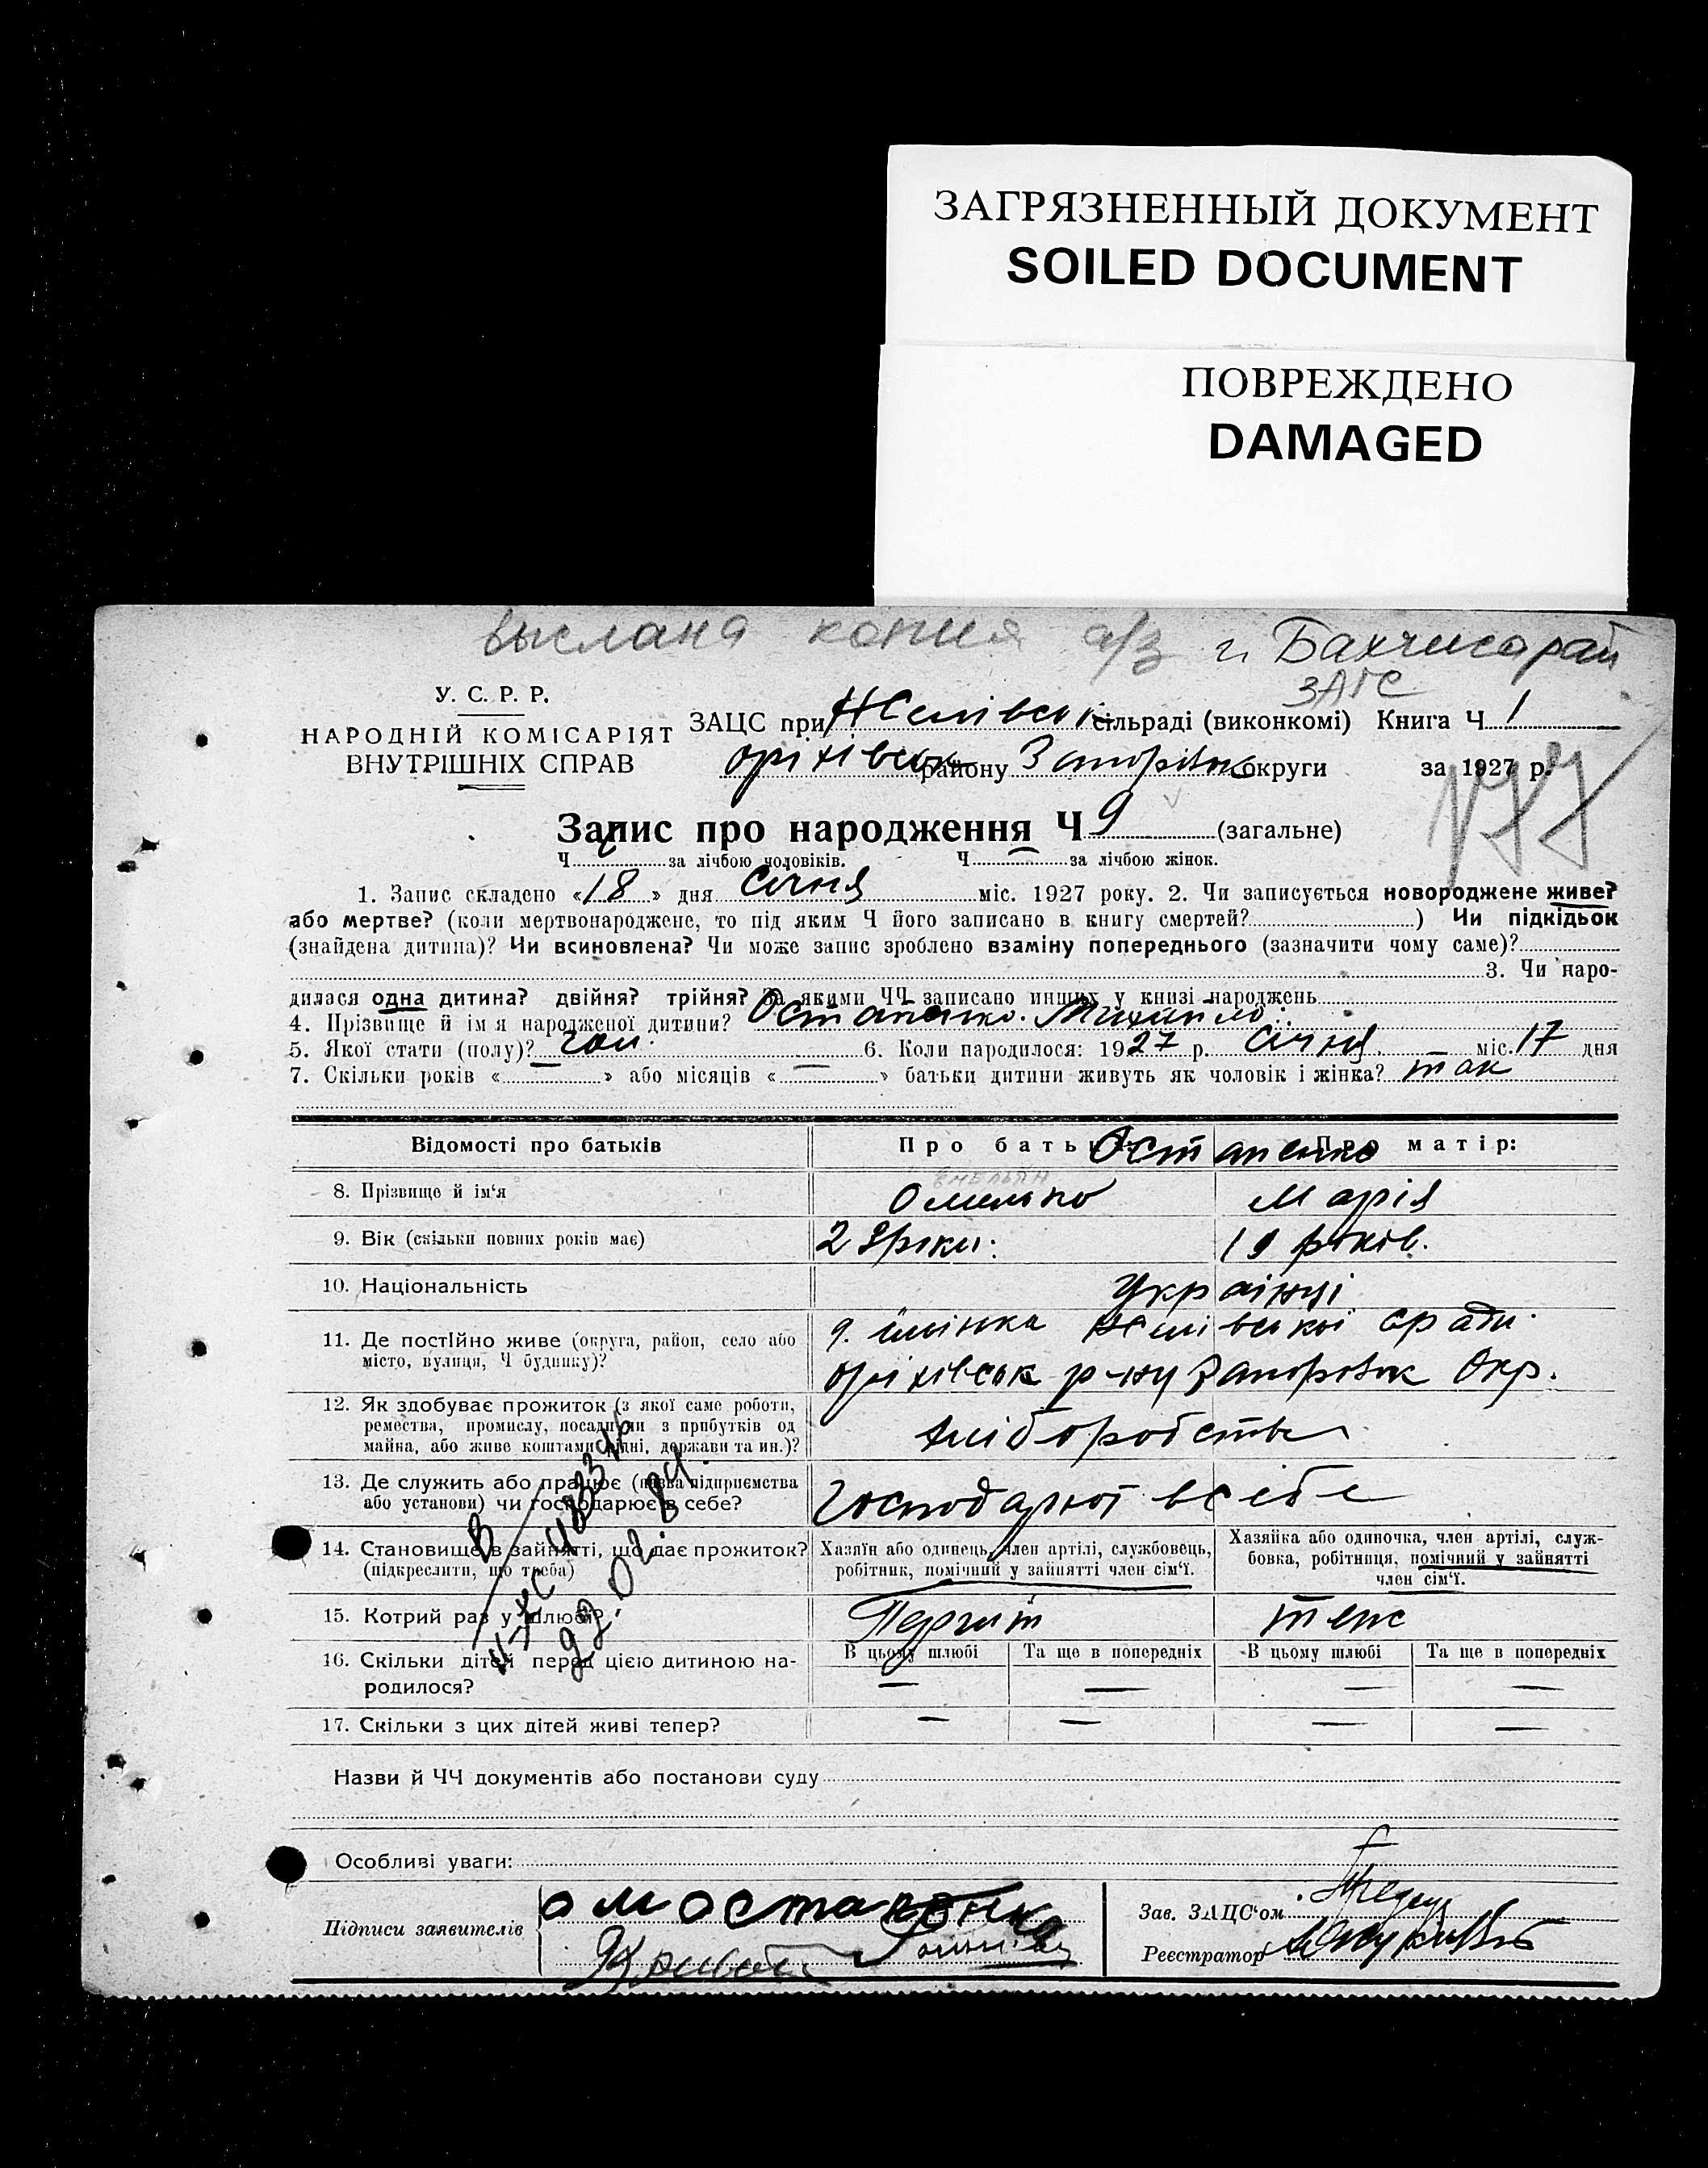 ЗАГРЯЗНЕННЫЙ ДОКУМЕНТ
SOILED DOCUMENT
ПОВРЕЖДЕНО
DAMAGED
выслана копия а/з г. Бахчисарай
ЗАГС
У. С. Р. Р.
НАРОДНІЙ КОМІСАРІЯТ
ВНУТРІШНІХ СПРАВ
ЗАЦС при сільраді (виконкомі) Книга Ч 1
оріхівськ району Запорізьк округи за 1927 р.
177
Запис про народження Ч 9 (загальне)
Ч за лічбою чоловіків. Ч — за лічбою жінок.
1. Запис складено «18» дня Січня міс. 1927 року. 2. Чи записується новороджене живе?
або мертве? (коли мертвонароджене, то під яким Ч його записано в книгу смертей? ) Чи підкідьок
(знайдена дитина)? Чи всиновлена? Чи може запис зроблено взаміну попереднього (зазначити чому саме)?
3. Чи наро-
дилася одна дитина? двійня? трійня? За якими ЧЧ записано инших у книзі народжень
4. Прізвище й ім'я народженої дитини? Остапенко Михайло
5. Якої стати (полу)? чол. 6. Коли народилося: 1927 р. Січня міс. 17 дня
7. Скільки років «—» або місяців «—» батьки дитини живуть як чоловік і жінка? так
Відомості про батьків Про батька: Про матір:
Остапенко
8. Прізвище й ім'я Омелько Марія
ЕМЕЛЬЯН
9. Вік (скільки повних років має) 22 роки. 19 років.
10. Національність Українці
11. Де постійно живе (округа, район, село або
місто, вулиця, Ч будинку)?
оріхівськ р-ну Запорізьк Окр.
12. Як здобуває прожиток (з якої саме роботи,
ремества, промислу, посади чи з прибутків од
майна, або живе коштами рідні, держави та ин.)?
хліборобство
13. Де служить або працює (назва підприємства
або установи) чи господарює в себе?
Господарюют в себе
14. Становище в зайнятті, що дає прожиток?
(підкреслити, що треба)
Хазяїн або одинець, член артілі, службовець,
робітник, помічний у зайнятті член сім'ї.
Хазяйка або одиночка, член артілі, служ-
бовка, робітниця, помічний у зайнятті
член сім'ї.
15. Котрий раз у шлюбі? Перший теж
16. Скільки дітей перед цією дитиною на-
родилося?
В цьому шлюбі Та ще в попередніх В цьому шлюбі Та ще в попередніх
— — — —
17. Скільки з цих дітей живі тепер? — — — —
22.02.84
Назви й ЧЧ документів або постанови суду
Особливі уваги:
Підписи заявителів ом остапенко
Зав. ЗАЦС'ом
Реєстратор